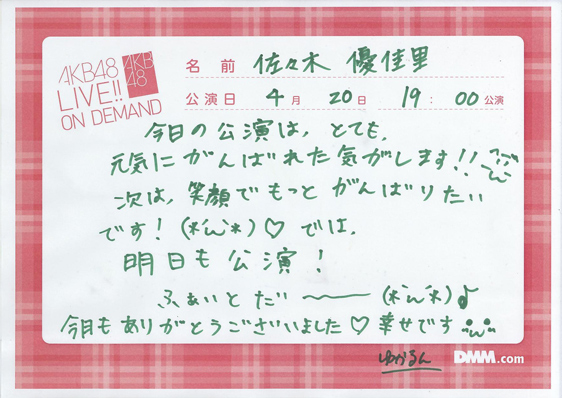 AKB48
LIVE!!
ON DEMAND
AKB
48
名前 佐々木 優佳里
公演日 4月 20日 19:00公演
今日の公演は、とても、
元気にがんばれた気がします!!
次は、笑顔でもっとがんばりたい
です!(*´ω`*)♡では、
明日も公演!
ふぁいとだぃ〜〜(*´ω`*)♪
今日もありがとうございました♡幸せです
ゆかるん
DMM.com